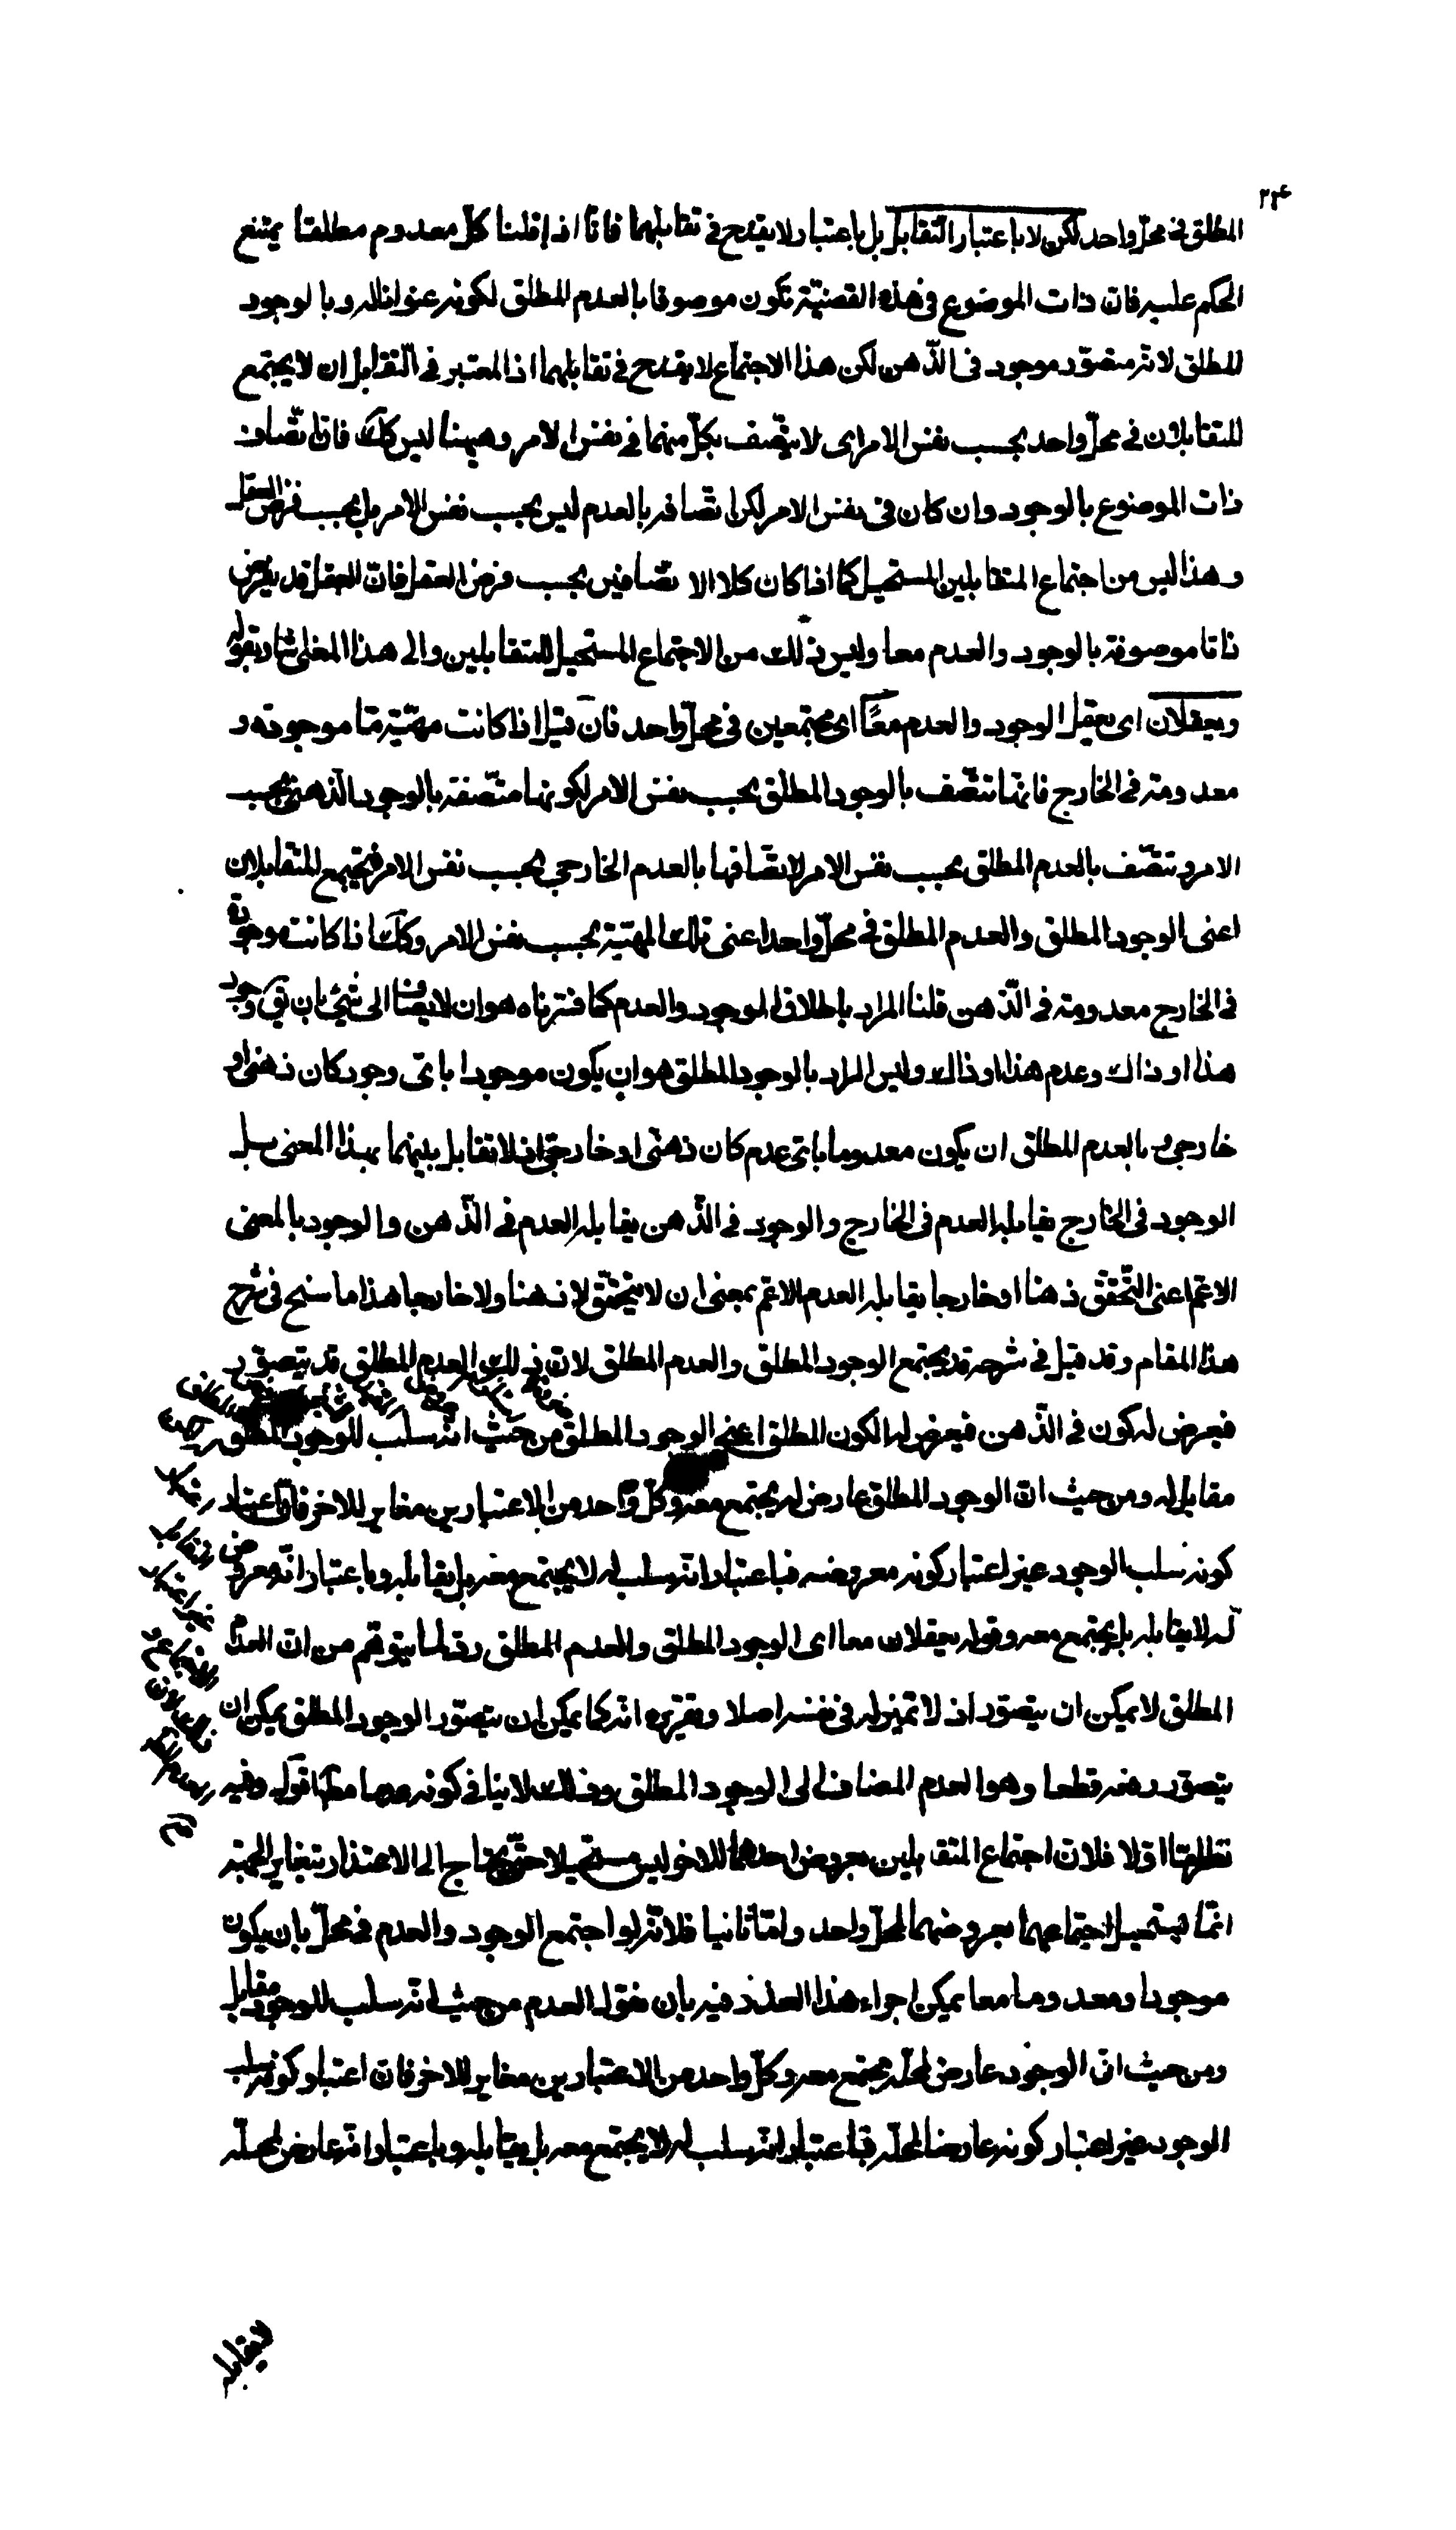 ۲۲۴
المطلق في محل واحد لكن لا باعتبار التقابل بل باعتبار لا يقدح في تقابلهما فانا اذا قلنا كل معدوم مطلقا يمتنع
الحكم عليه فان ذات الموضوع في هذه القضيّة تكون موصوفا بالعدم المطلق لكونه عنوانا له و بالوجود
المطلق لانه متصوّر موجود في الذّهن لكن هذا الاجتماع لا يقدح في تقابلهما اذ المعتبر في التقابل ان لا يجتمع
المتقابلان في محلّ واحد بحسب نفس الامر اى لا يتّصف بكلّ منهما في نفس الامر وههنا ليس كك فان اتّصاف
ذات الموضوع بالوجود وان كان في نفس الامر لكن اتّصافه بالعدم ليس بحسب نفس الامر بل بحسب فرض العقل
وهذا ليس من اجتماع المتقابلين المستحيل كما اذا كان كلا الاتّصافين بحسب فرض العقل فانّ العقل قد يفرض
ذاتا موصوفة بالوجود والعدم معا وليس ذلك من الاجتماع المستحيل للمتقابلين والى هذا المعنى اشار بقوله
ويعقلان اى يعقل الوجود والعدم معًا اى مجتمعين في محلّ واحد فان قيل اذا كانت مهيّة ما موجودة و
معدومة في الخارج فانها تتّصف بالوجود المطلق بحسب نفس الامر لكونها متّصفة بالوجود الذهنى بحسب
الامر و تتّصف بالعدم المطلق بحسب نفس الامر لاتّصافها بالعدم الخارجى بحسب نفس الامر فيجتمع المتقابلان
اعنى الوجود المطلق والعدم المطلق في محلّ واحد اعنى تلك المهيّة بحسب نفس الامر وكك اذا كانت موجودة
في الخارج معدومة في الذّهن قلنا المراد باطلاق الوجود والعدم كما فسّرناه هو ان لا يضاف الى شىء بان يقال وجود
هذا او ذاك وعدم هذا او ذاك وليس المراد بالوجود المطلق هو ان يكون موجودا باىّ وجود كان ذهنى او
خارجى و بالعدم المطلق ان يكون معدوما باىّ عدم كان ذهنى او خارجى اذ لا تقابل بينهما بهذا المعنى بل
الوجود في الخارج يقابله العدم في الخارج والوجود في الذّهن يقابله العدم في الذّهن والوجود بالمعنى
الاعمّ اعنى التّحقّق ذهنا او خارجا يقابله العدم الاعمّ بمعنى ان لا يتحقّق لا ذهنا ولا خارجا هذا ما سنح في شرح
هذا المقام وقد قيل في شرحه قد يجتمع الوجود المطلق والعدم المطلق لان ذلك العدم المطلق قد يتصوّر
فيعرض له كون في الذّهن فيعرض له الكون المطلق اعنى الوجود المطلق من حيث انّه سلب للوجود المطلق
مقابل له ومن حيث انّ الوجود المطلق عارض له يجتمع معه وكلّ واحد من الاعتبارين مغاير للاخر فانّ اعتبار
كونه سلب الوجود غير اعتبار كونه معروضه فباعتبار انّه سلب له لا يجتمع معه بل يقابله و باعتبار انّه معروض
له لا يقابله بل يجتمع معه وقوله يعقلان معا اى الوجود المطلق والعدم المطلق ردّ لما يتوهّم من ان العدم
المطلق لا يمكن ان يتصوّر اذ لا تميّز له في نفسه اصلا و تقريره انه كما يمكن ان يتصوّر الوجود المطلق يمكن ان
يتصوّر رفعه قطعا وهو العدم المضاف الى الوجود المطلق وذلك لا ينافى كونه عدما مطلقا اقول وفيه
نظر امّا اوّلا فلان اجتماع المتقابلين بعروض احدهما للاخر ليس مستحيلا حتى يحتاج الى الاعتذار بتغاير الجهة
انّما يستحيل اجتماعهما بعروضهما لمحلّ واحد وامّا ثانيا فلانّه لو اجتمع الوجود والعدم في محلّ بان يكون
موجودا ومعدوما معا يمكن اجراء هذا العذر فيه بان نقول العدم من حيث انّه سلب للوجود مقابل
ومن حيث انّ الوجود عارض لمحلّه مجتمع معه وكلّ واحد من الاعتبارين مغاير للاخر فان اعتبار كونه سلب
الوجود غير اعتبار كونه عارضا لمحلّه فباعتبار انّه سلب له لا يجتمع معه بل يقابله و باعتبار انّه عارض لمحلّه
لا يقابله